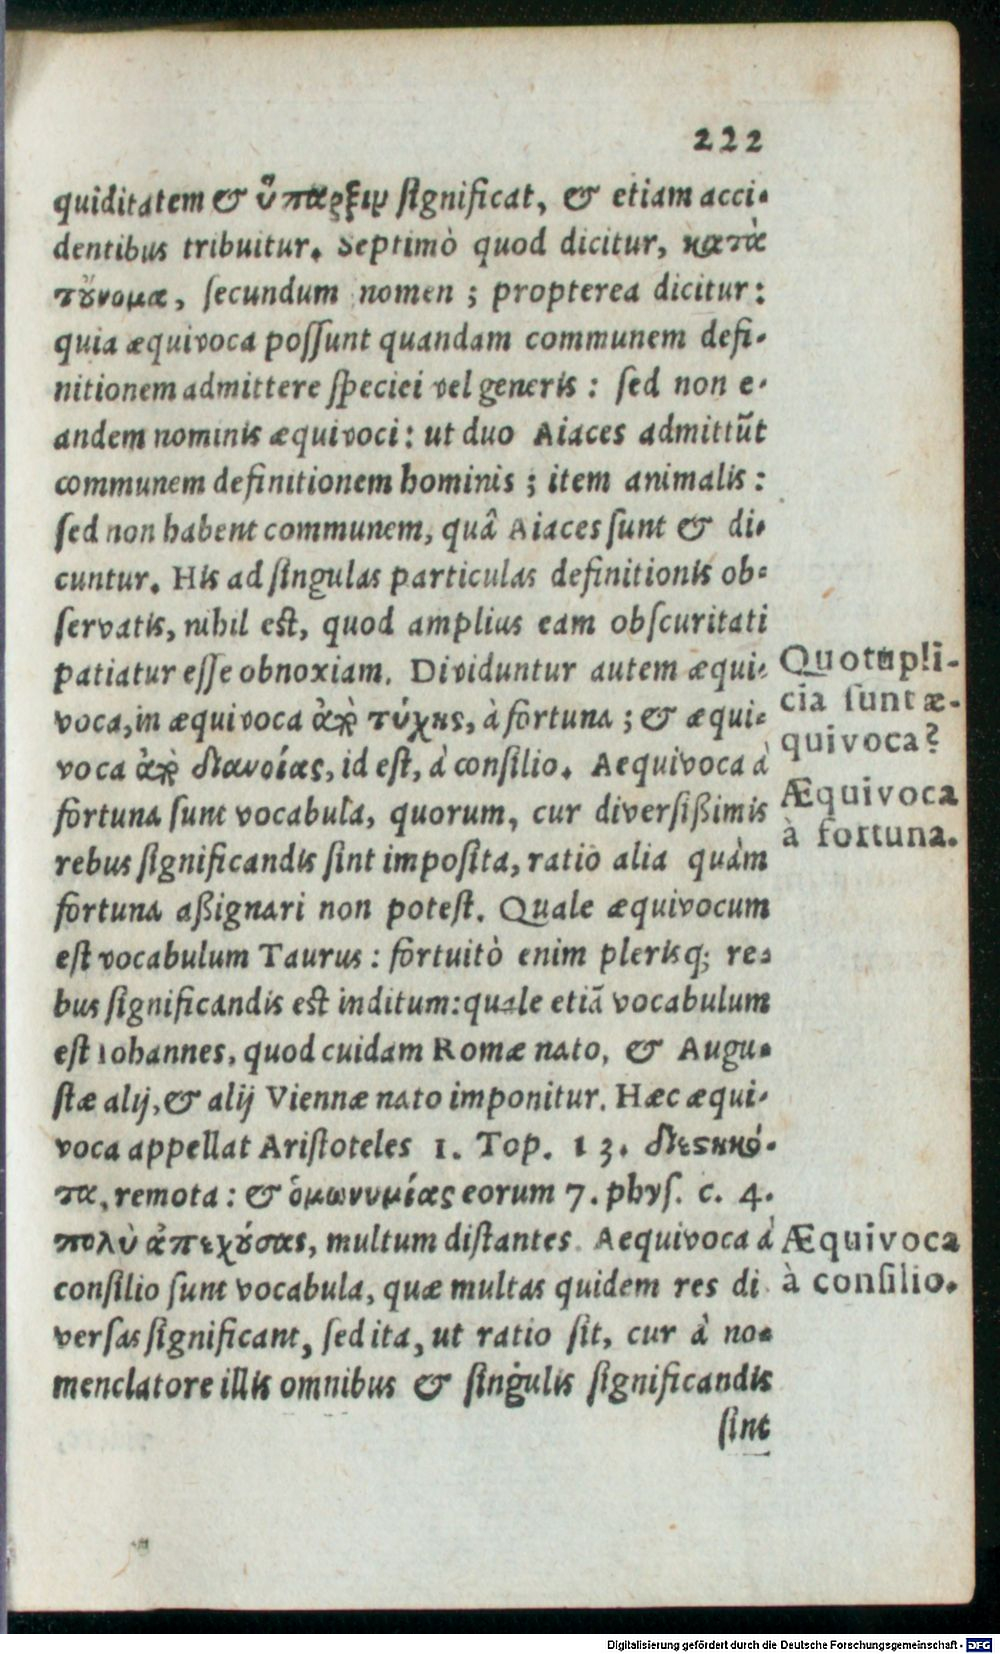 222
quiditatem & ὕπαρξιν ſignificat, & etiam acci-
dentibus tribuitur. Septimò quod dicitur, κατὰ
τοὔνομα, ſecundum nomen ; propterea dicitur:
quia æquivoca poſſunt quandam communem defi-
nitionem admittere ſpeciei vel generis : ſed non e-
andem nominis æquivoci : ut duo Aiaces admittūt
communem definitionem hominis ; item animalis :
ſed non habent communem, quâ Aiaces ſunt & di-
cuntur. His ad ſingulas particulas definitionis ob-
ſervatis, nihil eſt, quod amplius eam obſcuritati
patiatur eſſe obnoxiam. Dividuntur autem æqui-
voca, in æquivoca ἀπὸ τύχης, à fortuna ; & æqui-
voca ἀπὸ διανοίας, id eſt, à conſilio. Aequivoca à
fortuna ſunt vocabula, quorum, cur diverſißimis
rebus ſignificandis ſint impoſita, ratio alia quàm
fortuna aßignari non poteſt. Quale æquivocum
eſt vocabulum Taurus : fortuitò enim plerisq; re-
bus ſignificandis eſt inditum: quale etiā vocabulum
eſt Iohannes, quod cuidam Romæ nato, & Augu-
ſtæ alij, & alij Viennæ nato imponitur. Hæc æqui-
voca appellat Ariſtoteles 1. Top. 13. διεστηκό-
τα, remota : & ὁμωνυμίας eorum 7. phyſ. c. 4.
πολὺ ἀπεχούσας, multum diſtantes. Aequivoca à
conſilio ſunt vocabula, quæ multas quidem res di
verſas ſignificant, ſed ita, ut ratio ſit, cur à no-
menclatore illis omnibus & ſingulis ſignificandis
ſint
Quotupli-
cia ſunt æ-
quivoca?
Æquivoca
à fortuna.
Æquivoca
à conſilio.
Digitalisierung gefördert durch die Deutsche Forschungsgemeinschaft - DFG